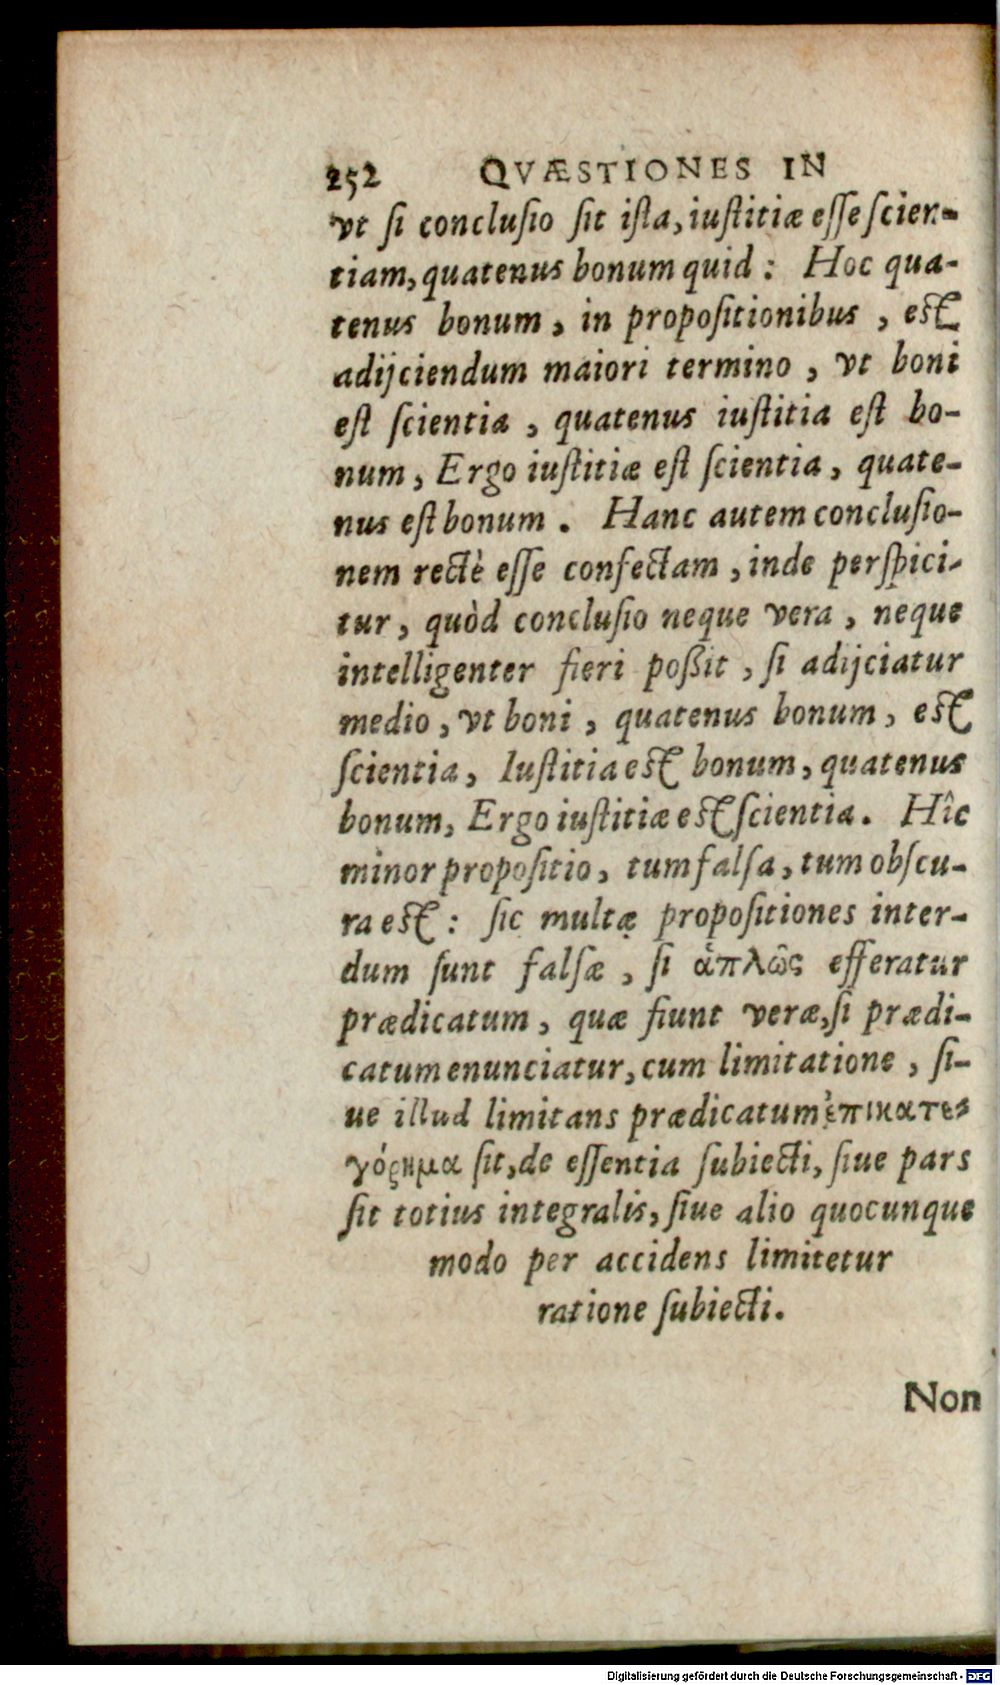 252 QVÆSTIONES IN
vt ſi concluſio ſit iſta, iuſtitiæ eſſe ſcien-
tiam, quatenus bonum quid : Hoc qua-
tenus bonum, in propoſitionibus, eſt
adijciendum maiori termino, vt boni
eſt ſcientia, quatenus iuſtitia eſt bo-
num, Ergo iuſtitiæ eſt ſcientia, quate-
nus eſt bonum. Hanc autem concluſio-
nem rectè eſſe confectam, inde perſpici-
tur, quòd concluſio neque vera, neque
intelligenter fieri poßit, ſi adijciatur
medio, vt boni, quatenus bonum, eſt
ſcientia, Iuſtitia eſt bonum, quatenus
bonum, Ergo iuſtitiæ eſt ſcientia. Hîc
minor propoſitio, tum falſa, tum obſcu-
ra eſt : ſic multę propoſitiones inter-
dum ſunt falſæ, ſi ἁπλῶς efferatur
prædicatum, quæ fiunt veræ, ſi prædi-
catum enunciatur, cum limitatione, ſi-
ue illud limitans prædicatum ἐπικατε-
γόρημα ſit, de eſſentia ſubiecti, ſiue pars
ſit totius integralis, ſiue alio quocunque
modo per accidens limitetur
ratione ſubiecti.
Non
Digitalisierung gefördert durch die Deutsche Forschungsgemeinschaft - DFG